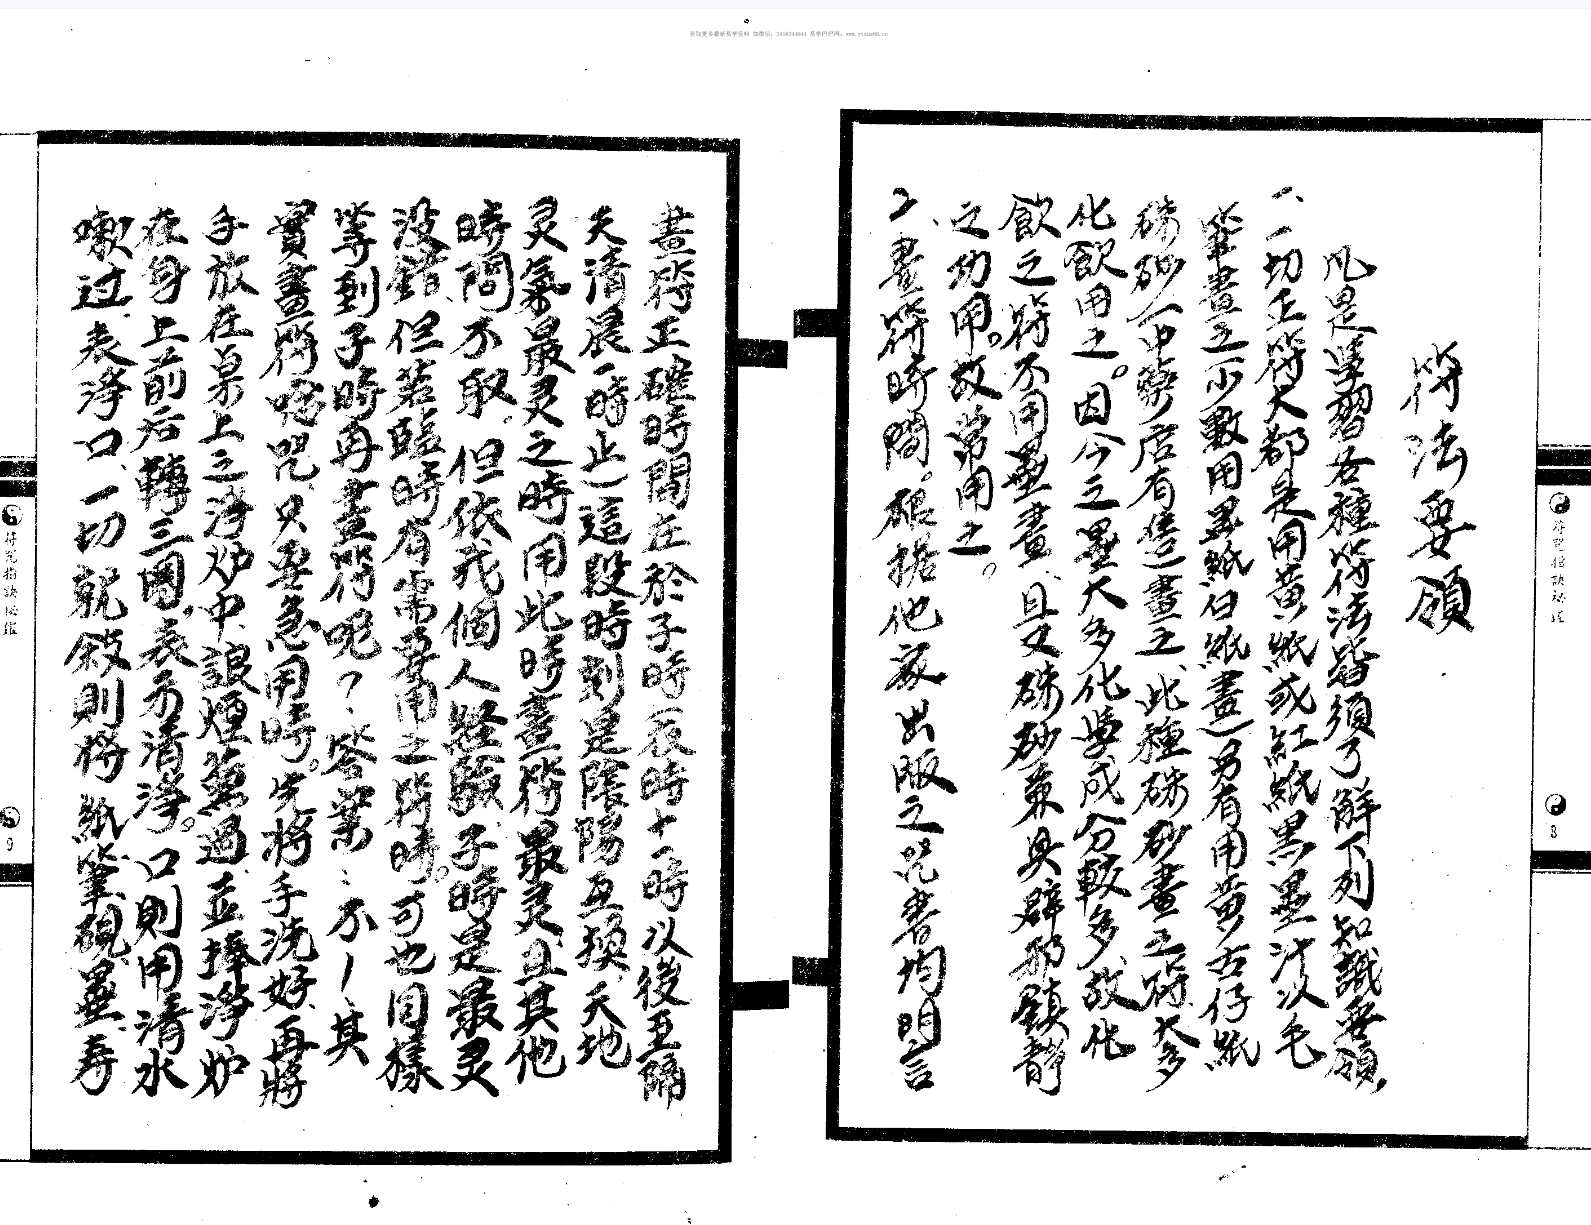 获取更多最新易学资料 加微信：3456344044 易学巴巴网：www.yixue88.cn
符法要領
凡是學習各種符法皆須了解下列知識要領，
一、一切正符大都是用黃紙或紅紙黑墨汁以毛
筆畫之少數用墨紙白紙畫）另有用黃古仔紙
硃砂（中藥店有售）畫之、此種硃砂畫之符、大多
化飲用之。因今之墨大多化學成分較多、故化
飲之符不用墨畫、且又硃砂兼具辟邪鎮靜
之功用。故常用之。
2、畫符時間。根据他家出版之咒書均明言
畫符正確時間在於子時（夜時十一時以後至隔
天清晨一時止）這段時刻是陰陽互換、天地
灵氣最灵之時用此時畫符最灵、且其他
時間不取、但依我個人經驗子時是最灵
沒錯、但若臨時有需要用之符時。可也同樣
等到子時再畫符呢？、答案：不！、其
實畫符唸咒、只要急用時。先將手洗好、再將
手放在桌上之淨炉中、讓煙薰過、並捧淨炉
在身上前后轉三圈，表示清淨。口則用清水
嗽过、表淨口、一切就敘則将紙筆硯墨壽
符咒指訣秘鑑
8
符咒指訣秘鑑
9